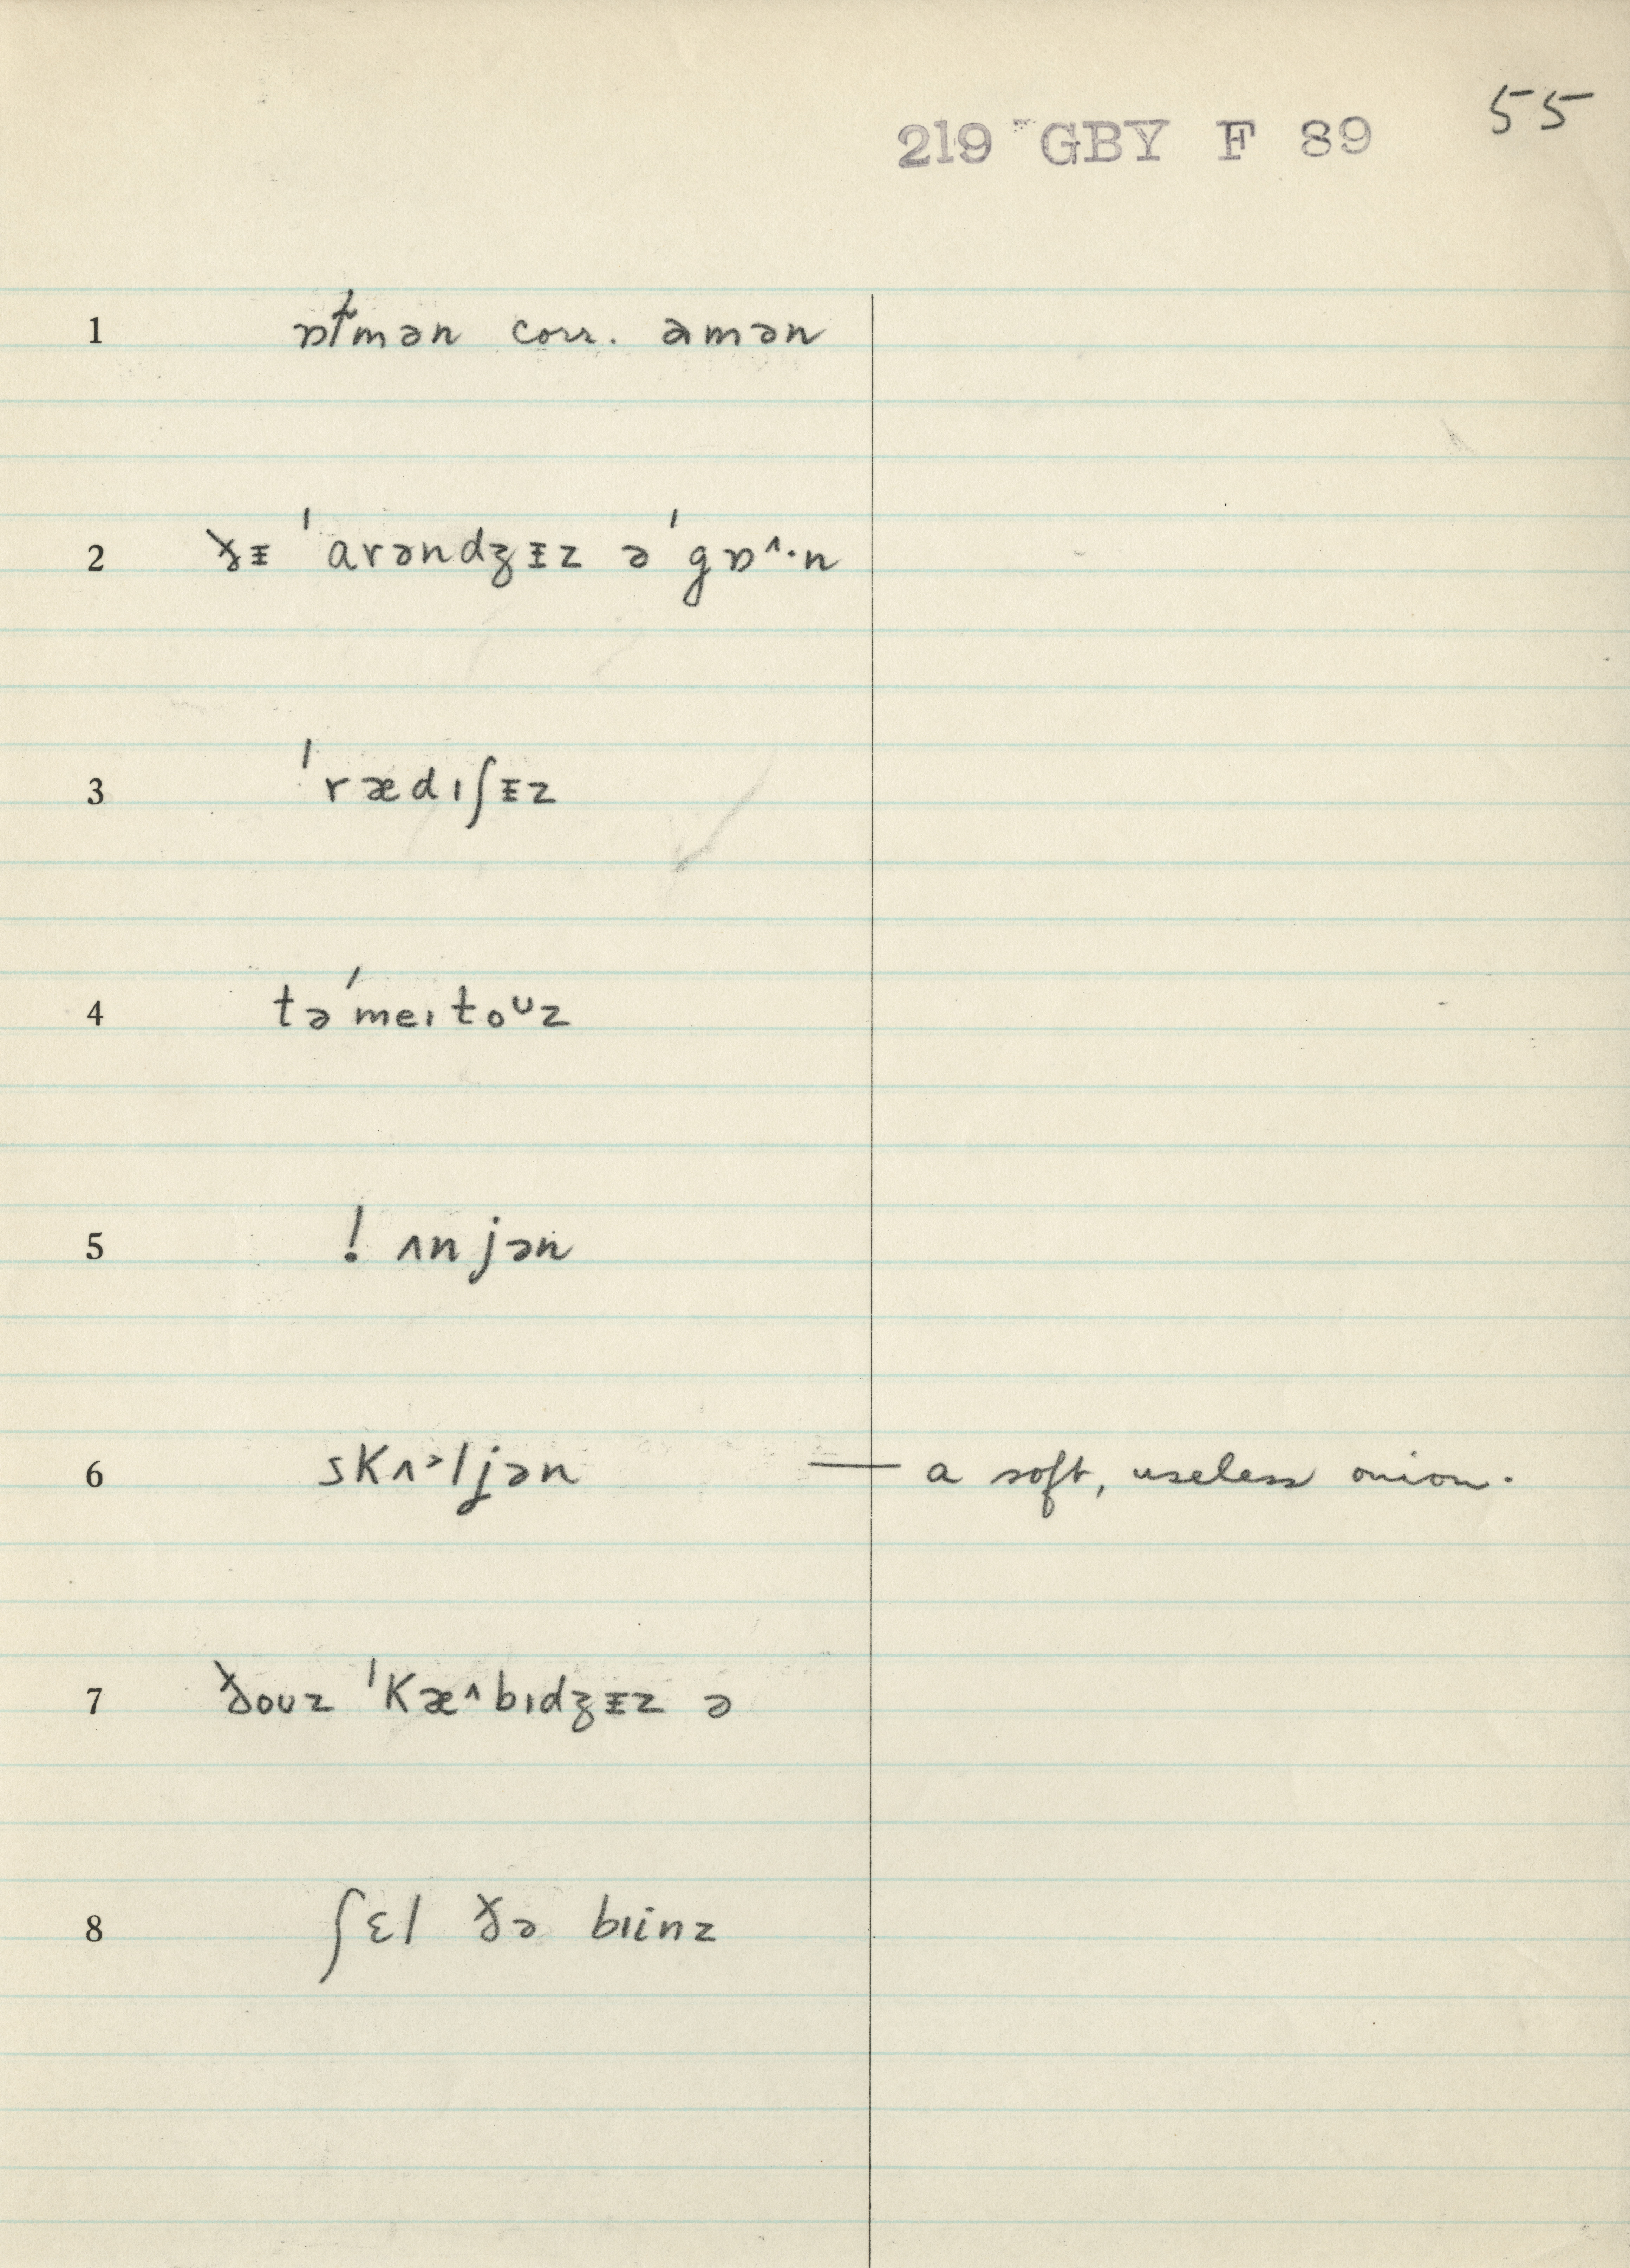 55
219 GBY F 89
1 ɒɫmən corr. amən
2 ðɪ̵ ˈarəndʒɪ̵z əˈgɒ^·n
3 ˈrædɪʃɪ̵z
4 təˈmeɪtoᴜz
5 ! ʌnjən
6 skʌ˃ljən — a soft, useless onion.
7 ðoᴜz ˈkæ^bɪdʒɪ̵z ə
8 ʃɛl ðə bɪinz